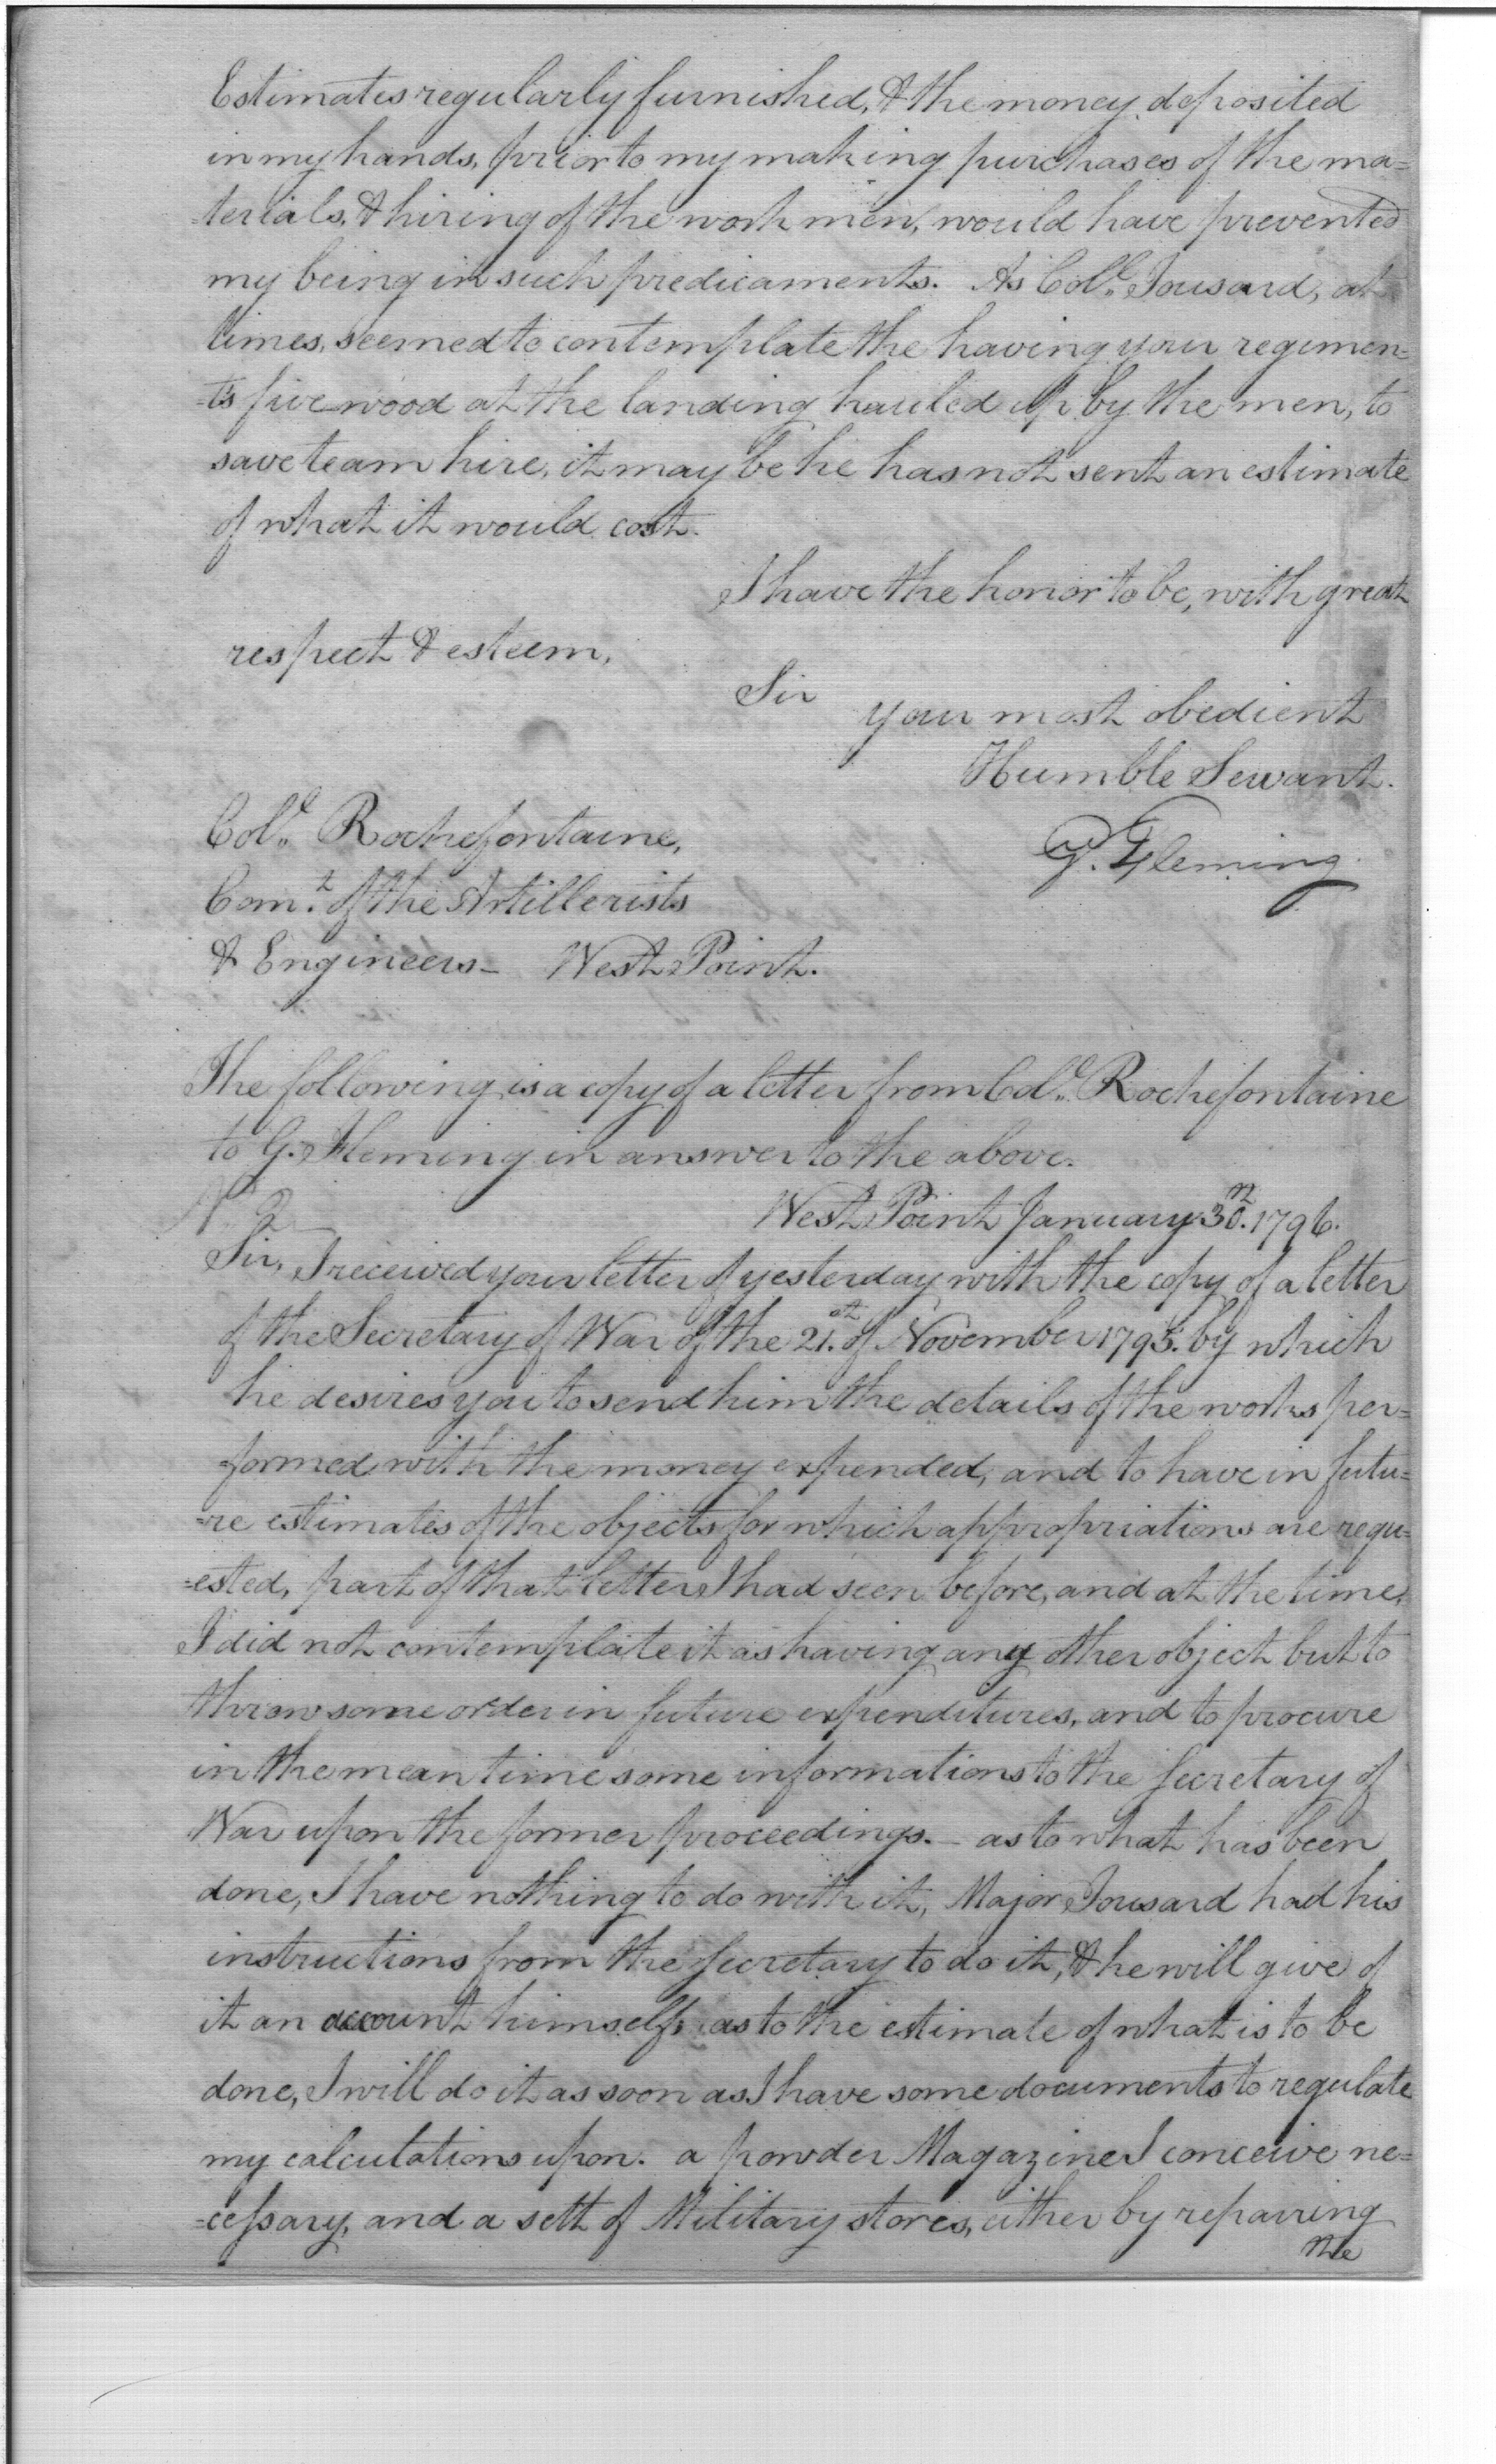 Estimates regularly furnished, & the money deposited
in my hands, prior to my making purchases of the ma=
terials, & hiring of the work men, would have prevented
my being in such predicaments. As Col.o Tousard, at
times, seemed to contemplate the having your regimen=
=ts fire wood at the landing hauled up by the men, to
save team hire, it may be he has not sent an estimate
of what it would cost.
I have the honor to be, with great
respect & esteem,
Sir
your most obedient
Humble Servant.
G. Fleming
Col.o Rochefontaine,
Com.t of the Artillerists
& Engineers - West Point.
The following is a copy of a letter from Col.o Rochefontaine
to G. Fleming in answer to the above.
N.o 2
West Point January 30.th 1796.
Sir, I received your letter of yesterday with the copy of a letter
of the Secretary of War of the 21.st of November 1795. by which
he desires you to send him the details of the works per=
formed with the money expended, and to have in futu=
=re estimates of the objects for which appropriations are requ=
=ested, part of that letter I had seen before, and at the time,
I did not contemplate it as having any other object but to
throw some order in future expenditures, and to procure
in the mean time some informations to the Secretary of
War upon the former proceedings. - as to what has been
done, I have nothing to do with it, Major Tousard had his
instructions from the Secretary to do it, & he will give of
it an account himself, as to the estimate of what is to be
done, I will do it as soon as I have some documents to regulate
my calculations upon. a powder Magazine I conceive ne=
=cessary, and a sett of Military stores, either by repairing
the